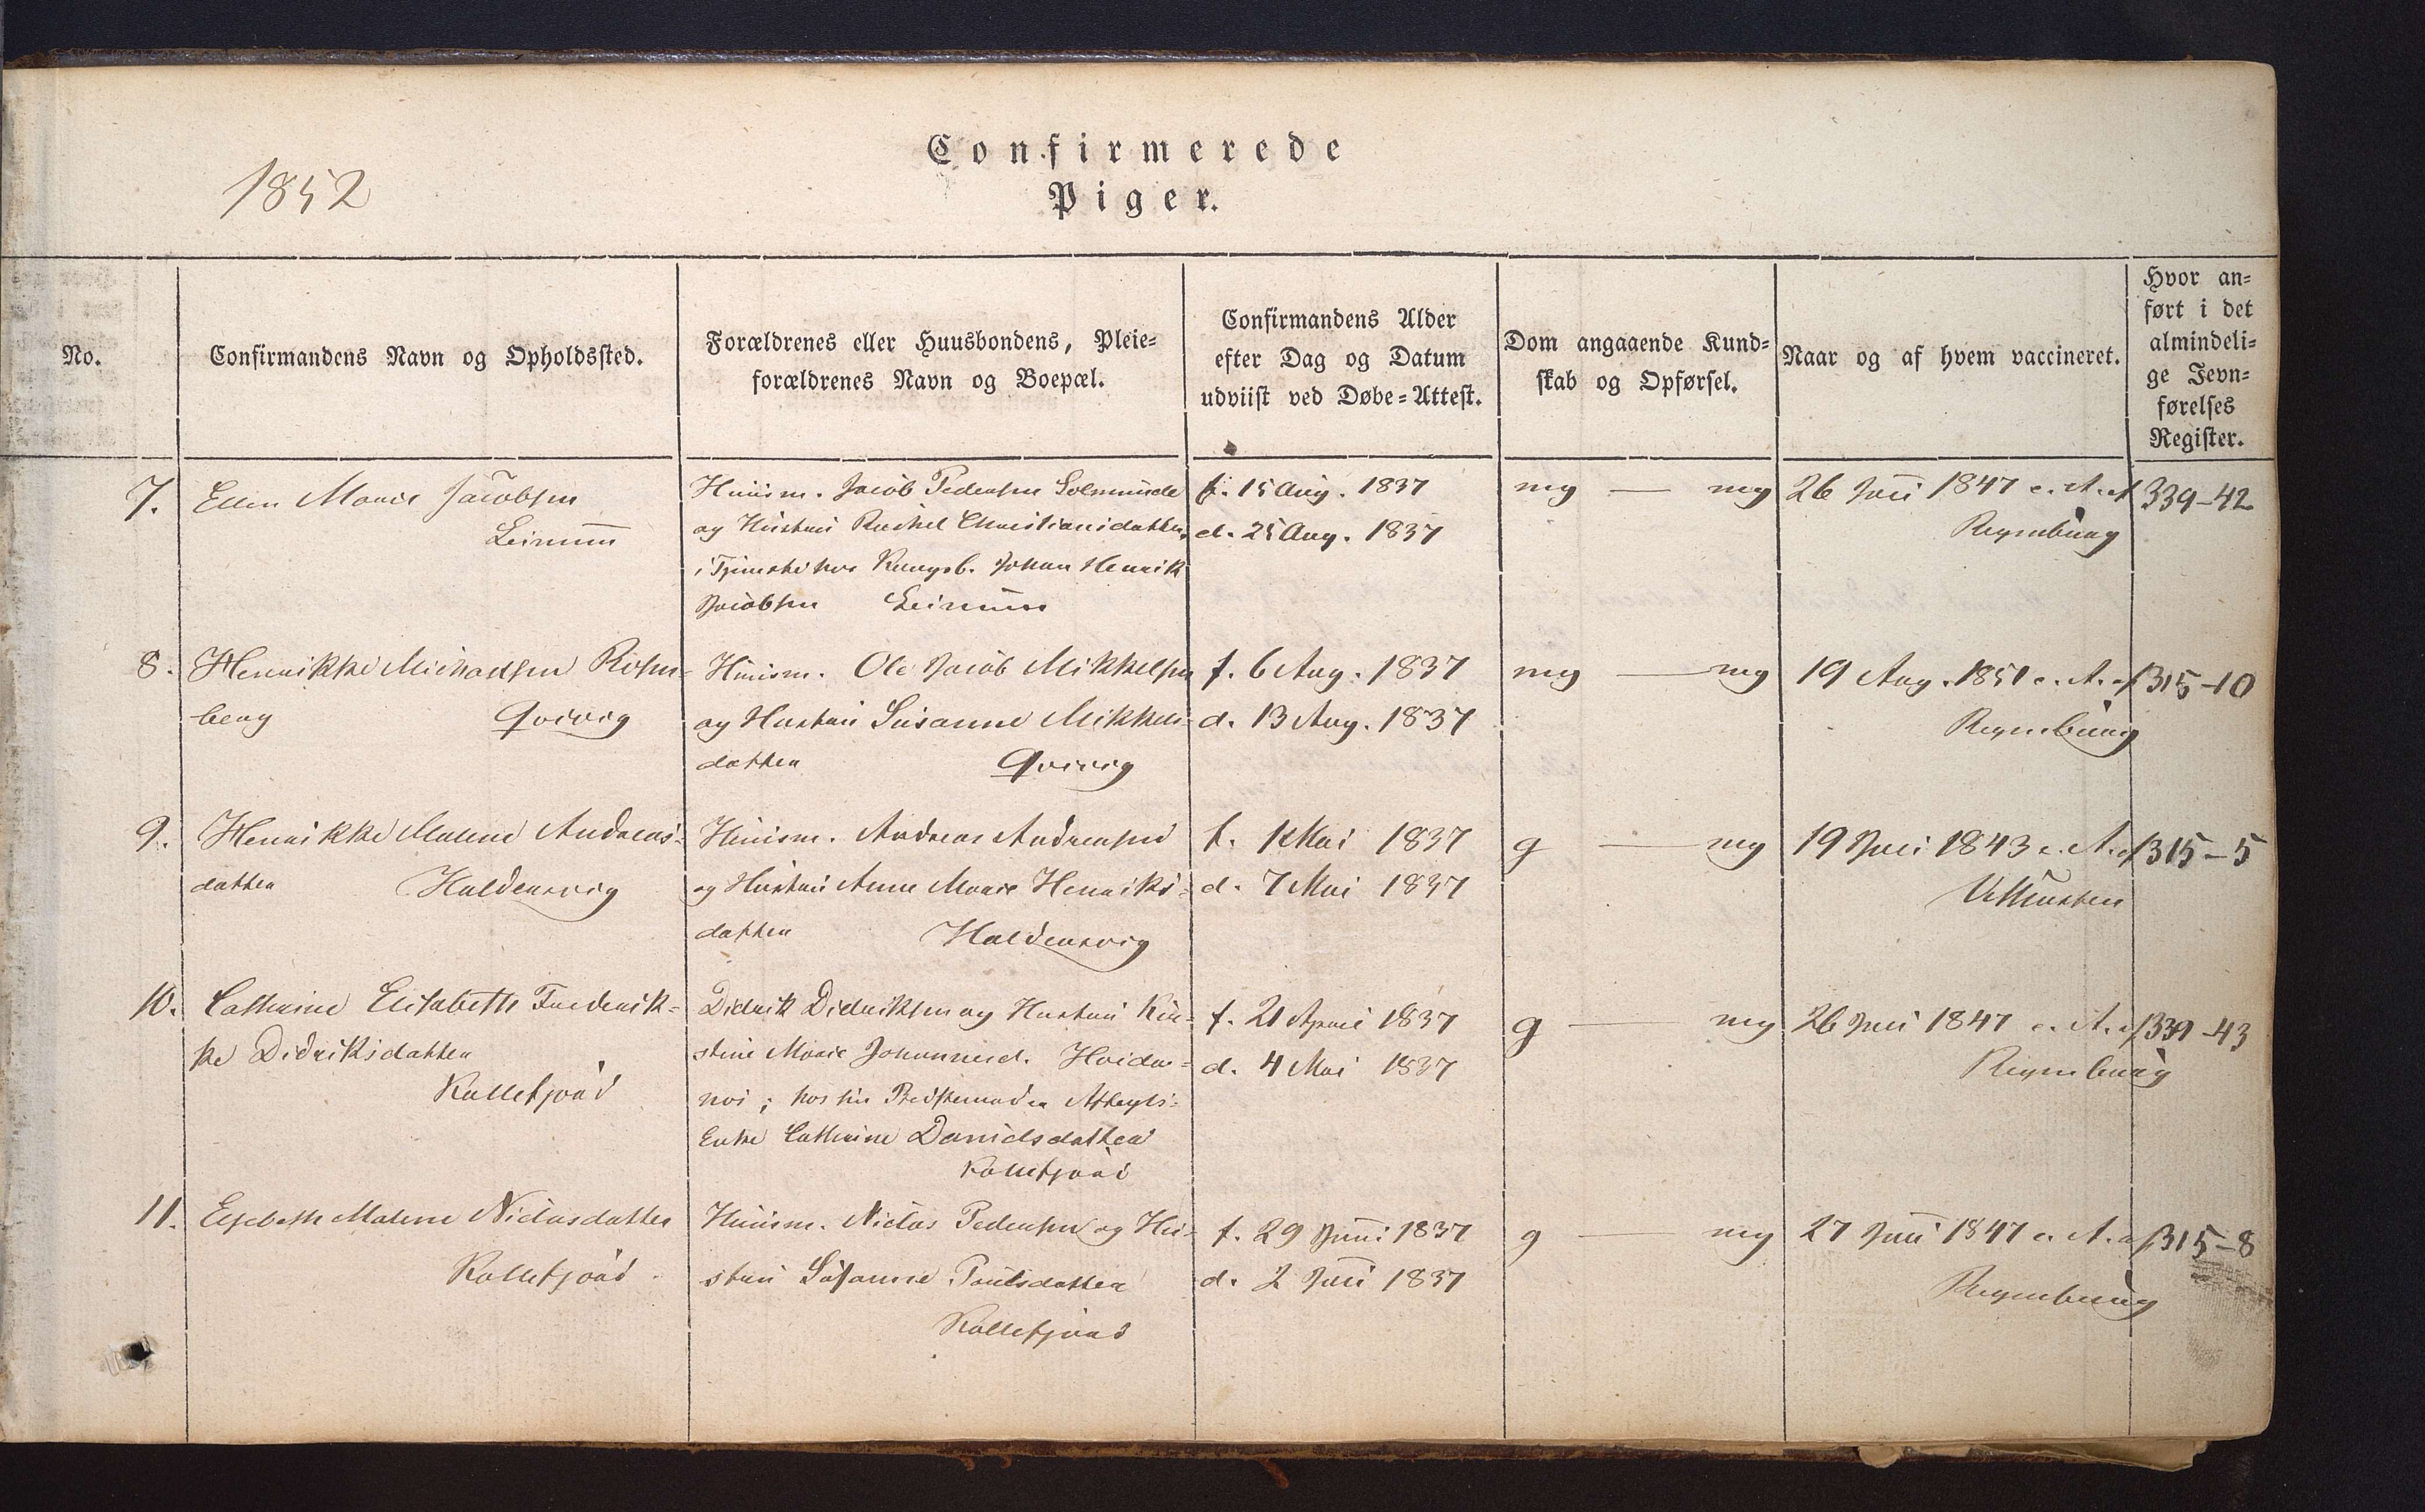 1852
Confirmerede
Piger.
No.
Confirmandens Navn og Opholdssted.
Forældrenes eller Huusbondens, Pleie-
forældrenes Navn og Boepæl.
Confirmandens Alder
efter Dag og Datum
udviist ved Døbe-Attest.
Dom angaaende Kund-
skab og Opførsel.
Naar og af hvem vaccineret.
Hvor an-
ført i det
almindeli-
ge Jevn-
førelses
Register.
7.
Ellen Marie Jacobsen
Leinum
Huusm. Jacob Pedersen Solmunde
og Hustru Rachel Christiansdatter,
i Tjeneste hos Kongsb. Johan Henrik
Jacobsen Leinum
f. 15 Aug. 1837
d. 25 Aug. 1837
mg — mg
26 Juli 1847 e. A. af
Regenburg
339-42
8.
Henrikke Michaelsen Rosen-
berg Qvivig
Huusm. Ole Jacob Mikkelsen
og Hustru Susanne Mikkels-
datter Qvivig
f. 6 Aug. 1837
d. 13 Aug. 1837
mg — mg
19 Aug. 1851 e. A. af
Regenburg
315-10
9.
Henrikke Malene Andreas-
datter Haldersvig
Huusm. Andreas Andreasen
og Hustru Anne Marie Henriks-
datter Haldersvig
f. 1 Mai 1837
d. 7 Mai 1837
g — mg
19 Juli 1843 e. A. af
315-5
10.
Cathrine Elisabeth Frederik-
ke Didriksdatter
Kollefjord
Didrik Didriksen og Hustru Kir-
stine Marie Johannesd. Hvidar-
nes; hos sin Bedstemoder Aftægts-
Enke Cathrine Danielsdatter
Kollefjord
f. 21 April 1837
d. 4 Mai 1837
g — mg
26 Juli 1847 e. A. af
Regenburg
339-43
11.
Elsebeth Malene Niclasdatter
Kollefjord
Huusm. Niclas Pedersen og Hu-
stru Susanne Poulsdatter
Kollefjord
f. 29 Juni 1837
d. 2 Juli 1837
g — mg
27 Juli 1847 e. A. af
Regenburg
315-8